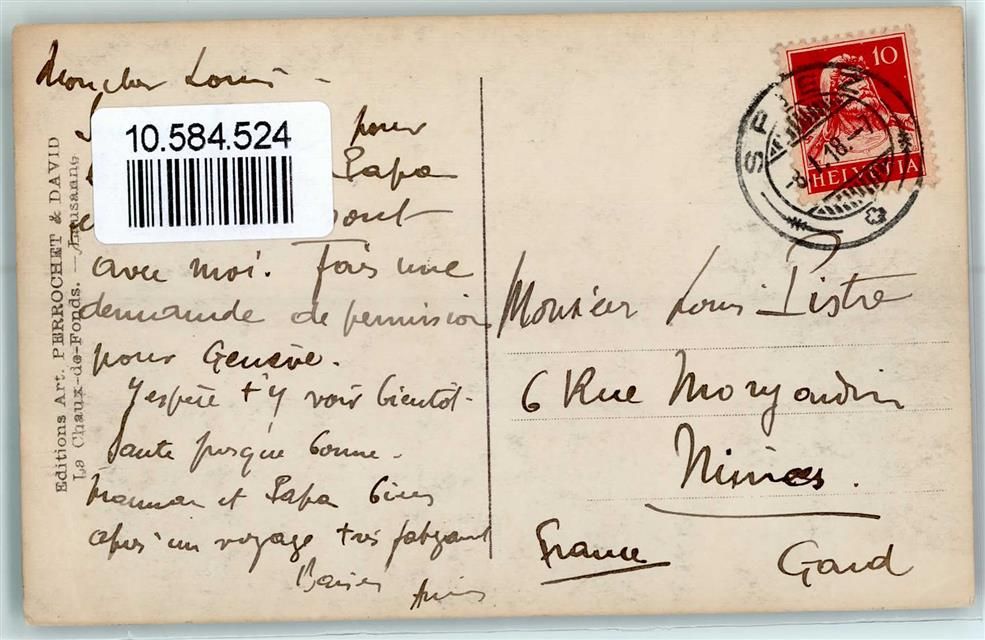 Mon cher Louis -
10.584.524
pour
Papa
sont
avec moi. Fais une
demande de permission
pour Genève.
J'espère t'y voir bientôt.
Santé presque bonne.
Maman et Papa bien
après un voyage très fatigant
Baisers
Editions Art. PERROCHET & DAVID
La Chaux-de-Fonds. — Lausanne
10
HELVETIA
-8.I.18.-
Monsieur Louis Pistre
6 Rue
Nimes.
France
Gard